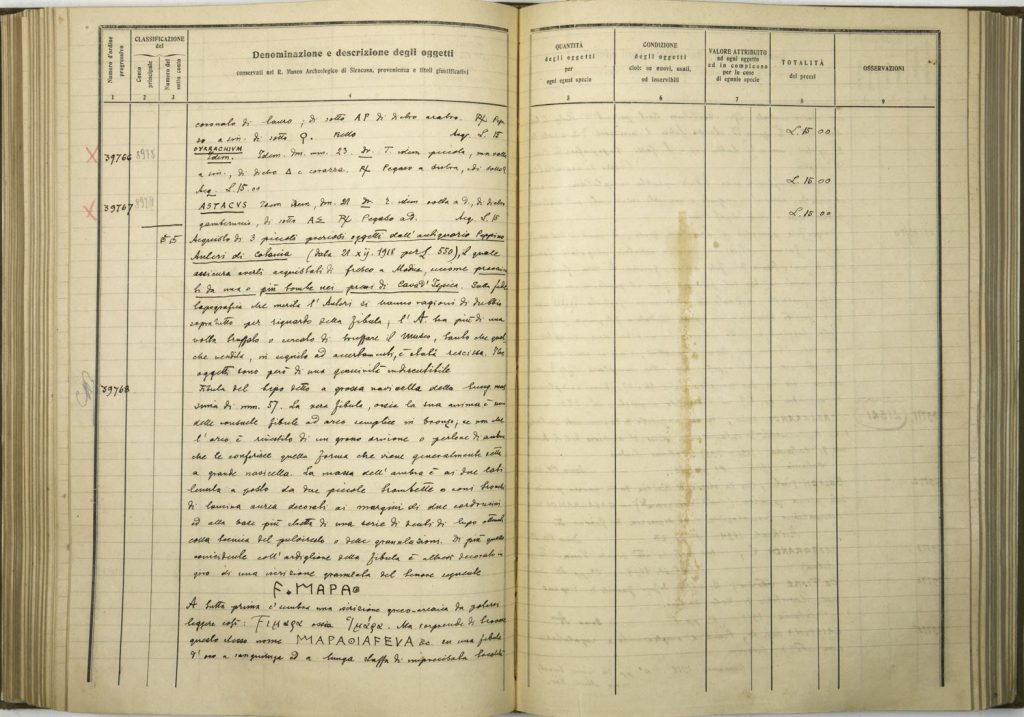 Numero d'ordine progressivo
CLASSIFICAZIONE del
Conto principale
Numero del sotto conto
Denominazione e descrizione degli oggetti
conservati nel R. Museo Archeologico di Siracusa, provenienza e titoli giustificativi
QUANTITÀ degli oggetti per ogni egual specie
CONDIZIONE degli oggetti cioè: se nuovi, usati, od inservibili
VALORE ATTRIBUITO ad ogni oggetto ed in complesso per le cose di eguale specie
TOTALITÀ dei prezzi
OSSERVAZIONI
1 2 3 4 5 6 7 8 9
coronata di lauro; di sotto AP di dietro arabro. Rx Pega
so a sin. di sotto Q. Bello Acq. L. 15
L. 15 00
39766 8978 DYRRACHIUM
Idem. Idem. dm. mm. 23. Dr. T. idem piccola, ma volta
a sin., di dietro Δ e corazza. Rx Pegaso a destra, di sotto
Acq. L. 15.00
L. 15 00
39767 ASTACVS Idem dm. 21 Dr. T. idem volta a d., di dietro
gambero, di sotto ΑΣ Rx Pegaso a d. Acq. L. 15
L. 15 00
55 Acquisto di 3 piccoli preziosi oggetti dall'antiquario Peppino
Auteri di Catania (data 21. xij. 1918 per £. 550), il quale
assicura averli acquistati di fresco a Modica, siccome provenien
ti da una o più tombe nei pressi di Cava d'Ispica. Sulla fede
topografica che merita l'Auteri si hanno ragioni di dubbio
sopratutto per riguardo della fibula, l'A. ha più di una
volta truffato o cercato di truffare il Museo, tanto che qual
che vendita, in seguito ad accertamenti, è stata rescissa. Gli
oggetti sono però di una genuinità indiscutibile
39768 Fibula del tipo detto a grossa navicella della lung. mas
sima di mm. 57. La vera fibula, ossia la sua anima è una
delle consuete fibule ad arco semplice in bronzo; se non che
l'arco è rivestito di un grosso o perlone di ambra
che le conferisce quella forma che viene generalmente detta
a grande navicella. La massa dell'ambra è ai due lati
tenuta a posto da due piccole trombette o coni tronchi
di lamina aurea decorati ai margini di due cordoncini
ed alla base più che di una serie di denti di lupo ottenuti
colla tecnica del pulviscolo o delle granulazioni. Di più quello
coincidente coll'ardiglione della fibula è altresì decorato in
giro di una iscrizione granulata del tenore seguente
F.MAPA⊙
A tutta prima c'sembra una iscrizione greco-arcaica da potersi
leggere così: Fιμαρα ossia Ἱμάρα. Ma sorprende di trovare
questo stesso nome MAPAΘIAFEVA &c. su una fibula
d'oro a sanguisuga ed a lunga staffa di imprecisata località